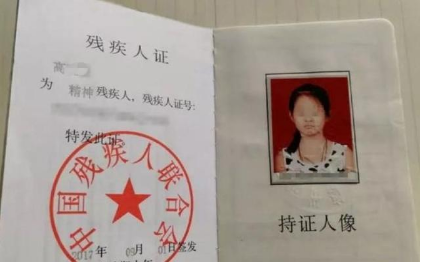 残疾人证
高
为 精神 残疾人，残疾人证号：
特发此证
中国残疾人联合会
2012年 09月 01日签发
持证人像